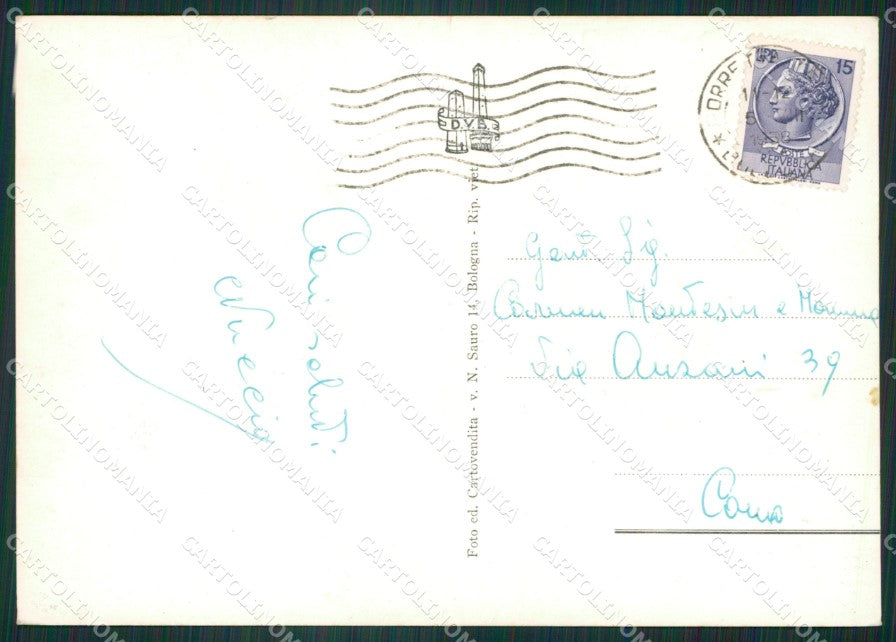 D.V.B.
ORRE
15
POSTE
REPVBBLICA
ITALIANA
Cari saluti
Nuccia
Foto ed. Cartovendita - v. N. Sauro 14, Bologna - Rip. viet.
Gent Sig.
Carmen Montesin e Mamma
Via Anzani 39
Como
CARTOLINOMANIA